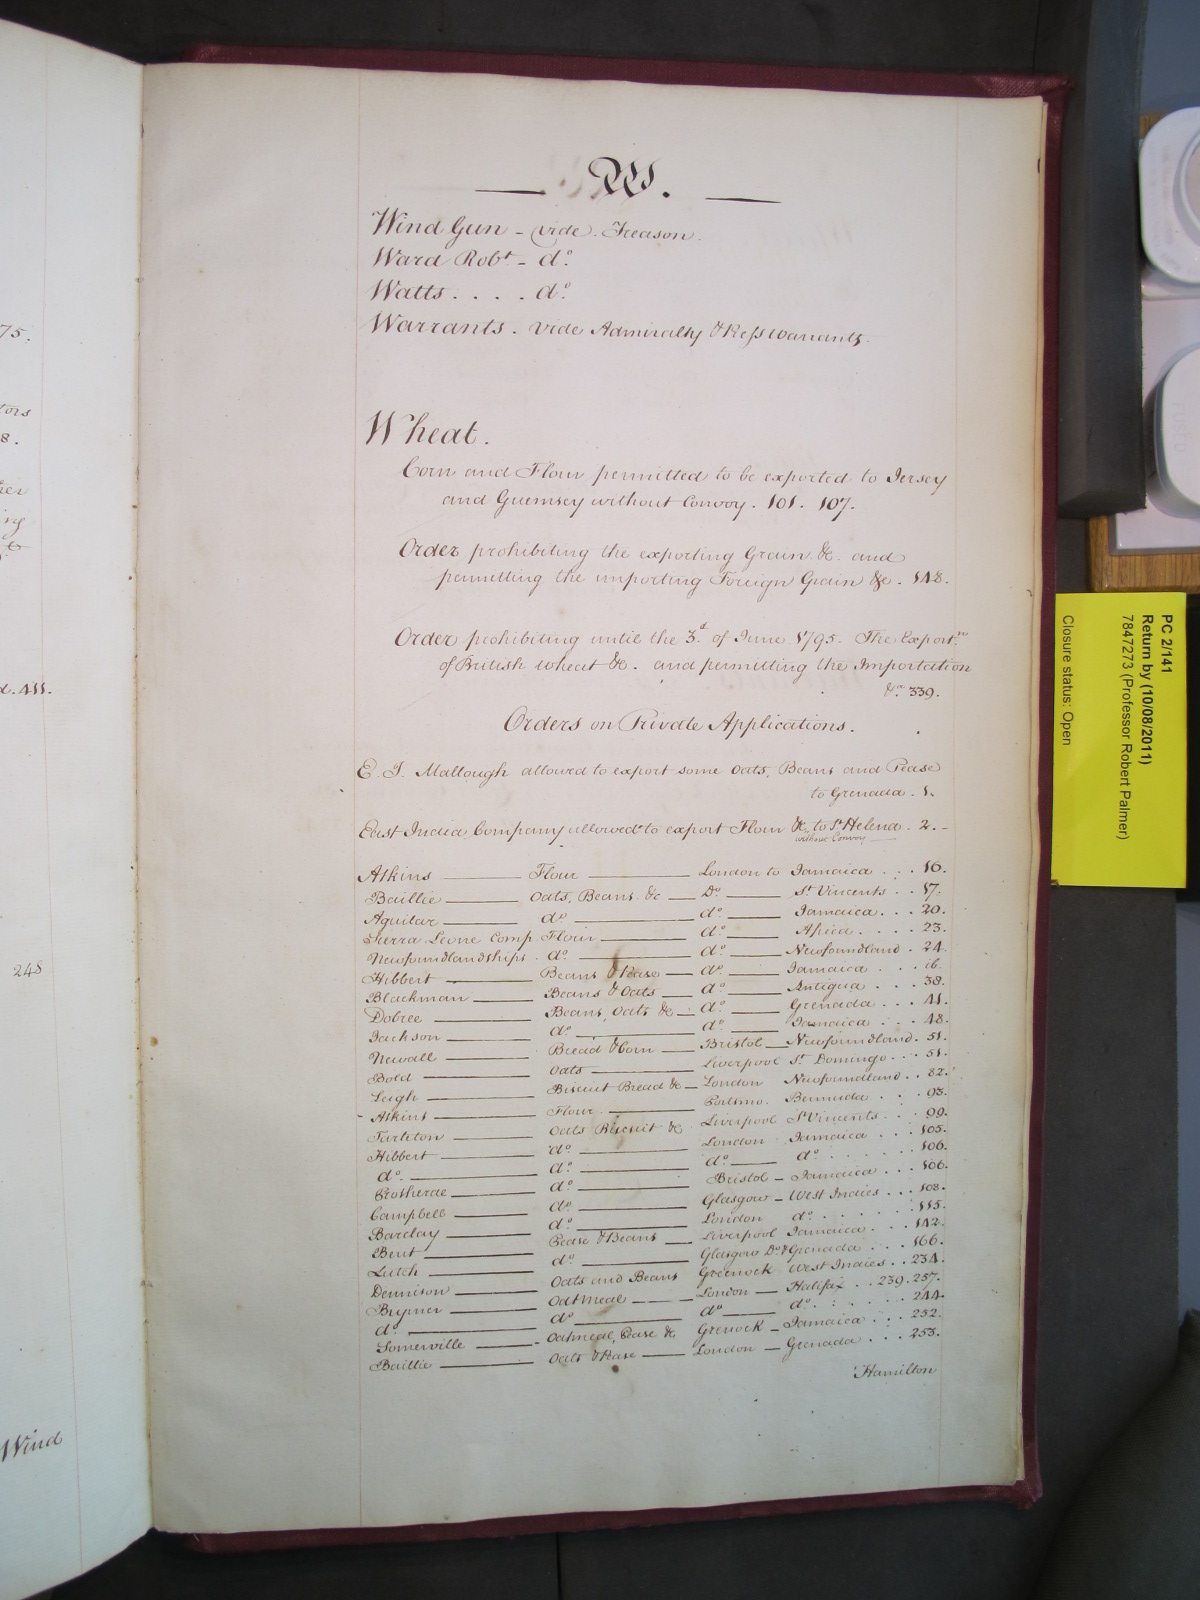 75.
tors
8.
d. 411.
248
Wind
W.
Wind Gun - vide. Treason.
Ward Robt - do.
Watts . . . . do.
Warrants. vide Admiralty & Press Warrants.
Wheat.
Corn and Flour permitted to be exported to Jersey
and Guernsey without Convoy. 101. 107.
Order prohibiting the exporting Grain &c. and
permitting the importing Foreign Grain &c. 148.
Order prohibiting until the 3d. of June 1795. The Exportn.
of British wheat &c. and permitting the Importation
&c. 339.
Orders on Private Applications.
E. J. Mallough allowed to export some Oats, Beans and Pease
to Grenada. 1.
East India Company allowed to export Flour &c. to St. Helena. 2. -
without Convoy
Atkins — Flour — London to Jamaica . . . 16.
Baillie — Oats, Beans &c — Do. — St. Vincents . . 17.
Aguilar — do. — do. — Jamaica . . . 20.
Sierra Leone Comp Flour — do. — Africa . . . . 23.
Newfoundland ships . do. — do. — Newfoundland . 24.
Hibbert — Beans & Pease — do. — Jamaica . . . ib.
Blackman — Beans & Oats — do. — Antigua . . . 38.
Dobree — Beans, Oats &c — do. — Grenada . . . 41.
Jackson — do. — do. — Jamaica . . . 48.
Newall — Bread & Corn — Bristol — Newfoundland . 51.
Bold — Oats — Liverpool St. Domingo . . . 51.
Leigh — Biscuit Bread &c — London Newfoundland . . 82.
- Atkins — Flour — Portsmo. Bermuda . . . 93.
Tarleton — Oats Biscuit &c. Liverpool St Vincents . . . 99.
Hibbert — do. — London Jamaica . . . 105.
do. — do. — do. — do. . . . . . 106.
Protheroe — do. — Bristol — Jamaica . . . 106.
Campbell — do. — Glasgow — West Indies . . . 108.
Barclay — do. — London do. . . . . . 115.
Bent — Pease & Beans — Liverpool Jamaica . . . 142.
Lutch — do. — Glasgow Do. & Grenada . . . 166.
Dennison — Oats and Beans Greenock West Indies . . 234.
Brymer — Oatmeal — London — Halifax . . 239. 257.
do. — do. — do — do. . . . . . 244.
Somerville — Oatmeal, Pease &c Grenock — Jamaica . . . 252.
Baillie — Oats & Pease — London — Grenada . . . 253.
Hamilton
PC 2/141
Return by (10/08/2011)
7847273 (Professor Robert Palmer)
Closure status: Open